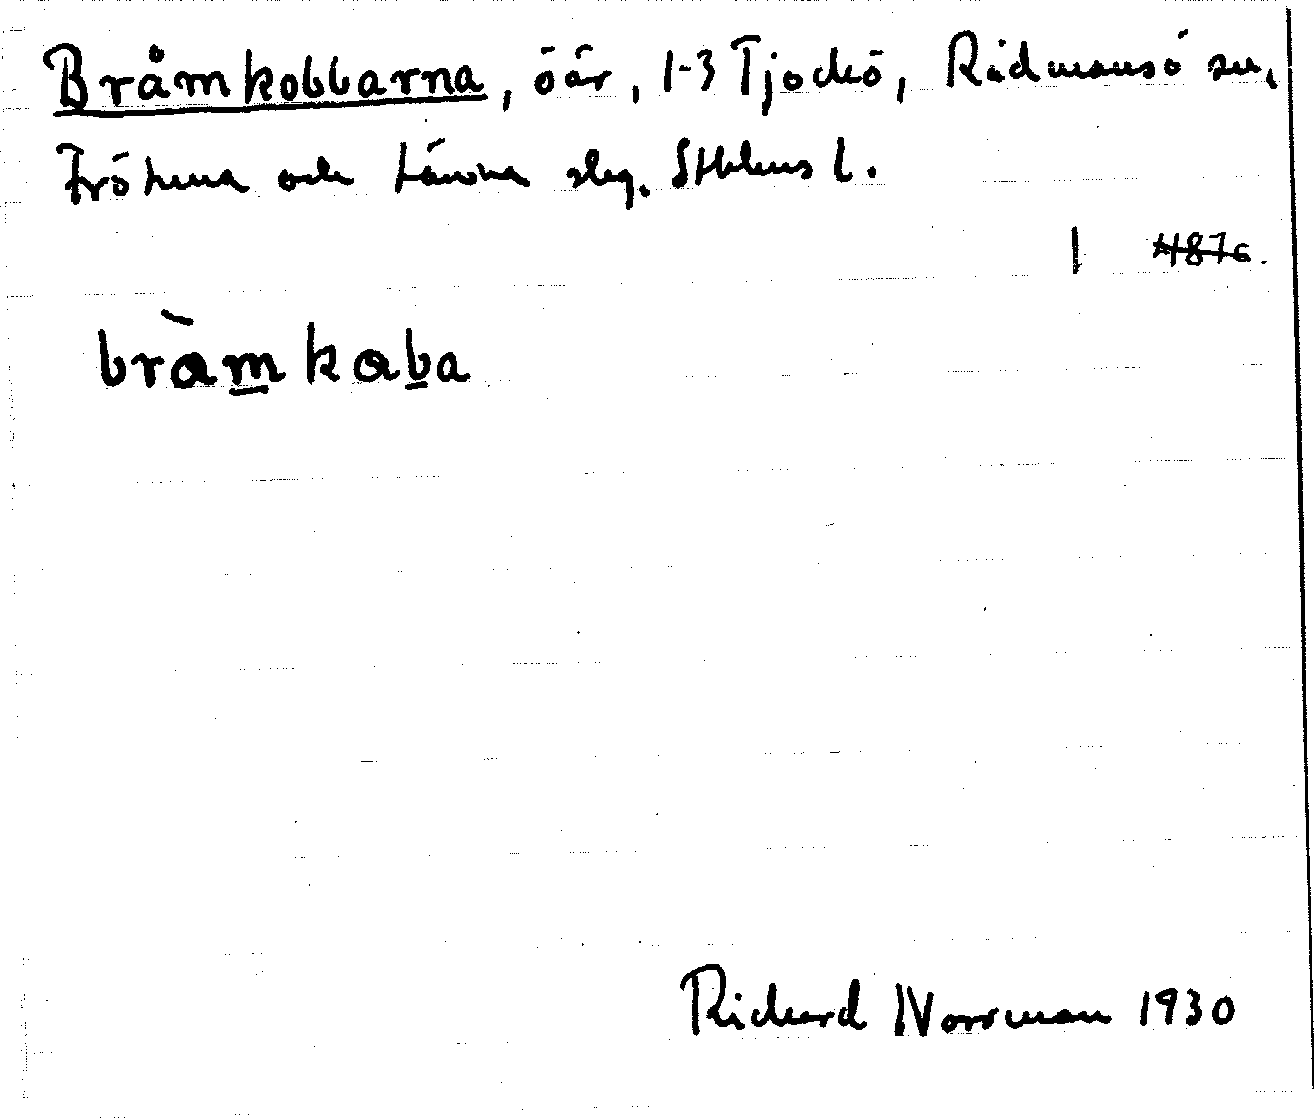 Bråmkobbarna, öar, 1-3 Tjockö, Rådmansö sn,
Frötuna och Länna slg. Sthlms l.
I 487c.
bràmkaba
Richard Norrman 1930